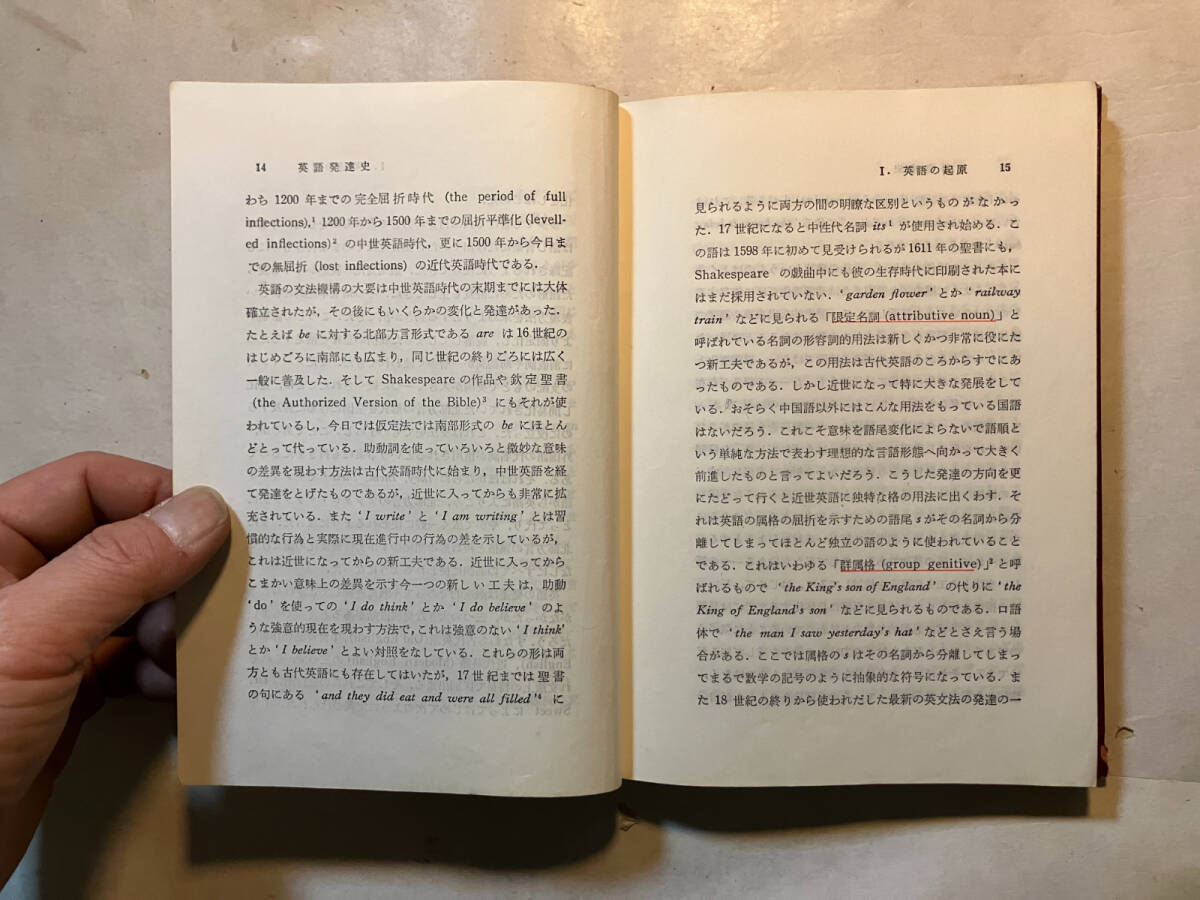 14 英語発達史
わち 1200 年までの完全屈折時代 (the period of full
inflections),¹ 1200 年から 1500 年までの屈折平準化 (levell-
ed inflections)² の中世英語時代, 更に 1500 年から今日ま
での無屈折 (lost inflections) の近代英語時代である.
英語の文法機構の大要は中世英語時代の末期までには大体
確立されたが, その後にもいくらかの変化と発達があった.
たとえば be に対する北部方言形式である are は 16 世紀の
はじめごろに南部にも広まり, 同じ世紀の終りごろには広く
一般に普及した. そして Shakespeare の作品や欽定聖書
(the Authorized Version of the Bible)³ にもそれが使
われているし, 今日では仮定法では南部形式の be にほとん
どとって代っている. 助動詞を使っていろいろと微妙な意味
の差異を現わす方法は古代英語時代に始まり, 中世英語を経
て発達をとげたものであるが, 近世に入ってからも非常に拡
充されている. また ‘I write’ と ‘I am writing’ とは習
慣的な行為と実際に現在進行中の行為の差を示しているが,
これは近世になってからの新工夫である. 近世に入ってから
こまかい意味上の差異を示す今一つの新しい工夫は, 助動
‘do’ を使っての ‘I do think’ とか ‘I do believe’ のよ
うな強意的現在を現わす方法で, これは強意のない ‘I think’
とか ‘I believe’ とよい対照をなしている. これらの形は両
方とも古代英語にも存在してはいたが, 17 世紀までは聖書
の句にある ‘and they did eat and were all filled’⁴ に
I. 英語の起原 15
見られるように両方の間の明瞭な区別というものがなかっ
た. 17 世紀になると中性代名詞 its¹ が使用され始める. こ
の語は 1598 年に初めて見受けられるが 1611 年の聖書にも,
Shakespeare の戯曲中にも彼の生存時代に印刷された本に
はまだ採用されていない. ‘garden flower’ とか ‘railway
train’ などに見られる「限定名詞 (attributive noun)」と
呼ばれている名詞の形容詞的用法は新しくかつ非常に役にた
つ新工夫であるが, この用法は古代英語のころからすでにあ
ったものである. しかし近世になって特に大きな発展をして
いる. おそらく中国語以外にはこんな用法をもっている国語
はないだろう. これこそ意味を語尾変化によらないで語順と
いう単純な方法で表わす理想的な言語形態へ向かって大きく
前進したものと言ってよいだろう. こうした発達の方向を更
にたどって行くと近世英語に独特な格の用法に出くわす. そ
れは英語の属格の屈折を示すための語尾 s がその名詞から分
離してしまってほとんど独立の語のように使われていること
である. これはいわゆる「群属格 (group genitive)」² と呼
ばれるもので ‘the King's son of England’ の代りに ‘the
King of England's son’ などに見られるものである. 口語
体で ‘the man I saw yesterday's hat’ などとさえ言う場
合がある. ここでは属格の s はその名詞から分離してしまっ
てまるで数学の記号のように抽象的な符号になっている. ま
た 18 世紀の終りから使われだした最新の英文法の発達の一